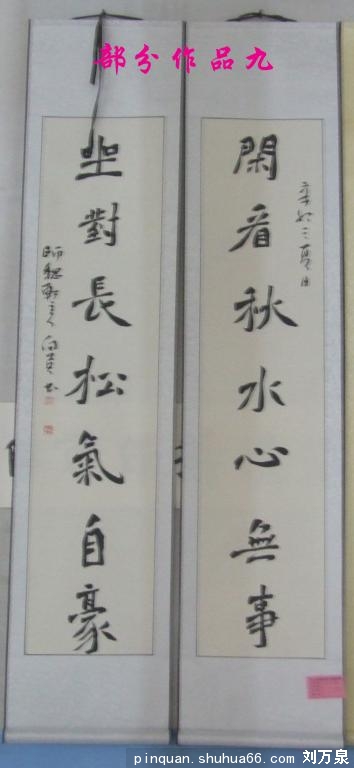 部分作品九
閑看秋水心無事
坐對長松氣自豪
pinquan.shuhua66.com 刘万泉